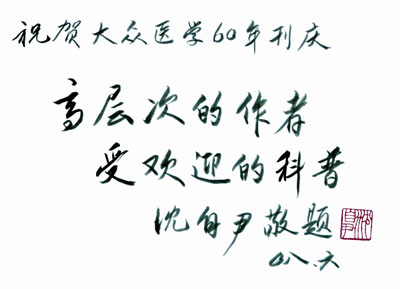 祝贺大众医学60年刊庆
高层次的作者
受欢迎的科普
沈自尹敬题
八.六